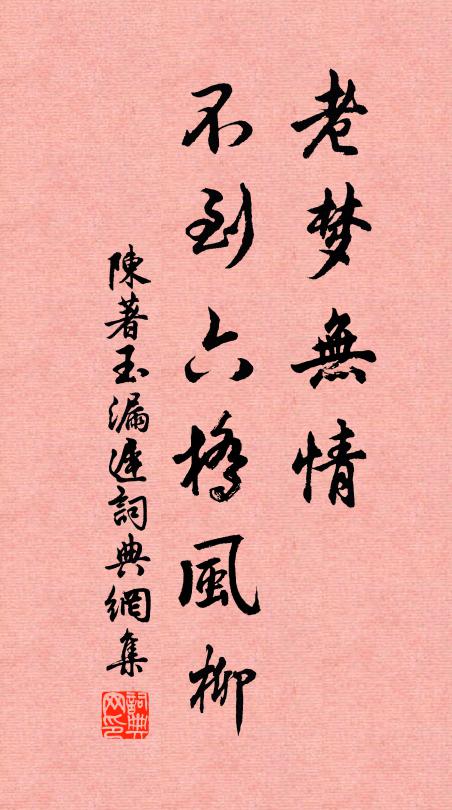 老梦無情
不到六橋風柳
陳著玉漏遲詞典網集
詞典
网印